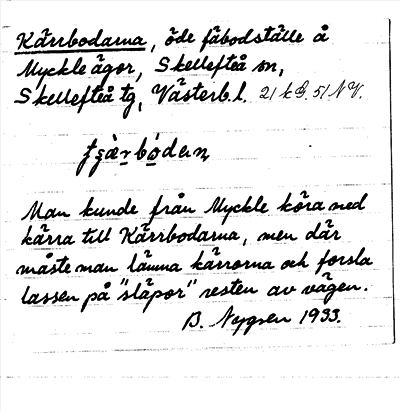 Kärrbodarna, öde fäbodställe å
Myckle ägor, Skellefteå sn,
Skellefteå tg, Västerb. l. 21 k G. 51 NV.
Man kunde från Myckle köra med
kärra till Kärrbodarna, men där
måste man lämna kärrorna och forsla
lassen på "släpor" resten av vägen.
B. Nygren 1933.